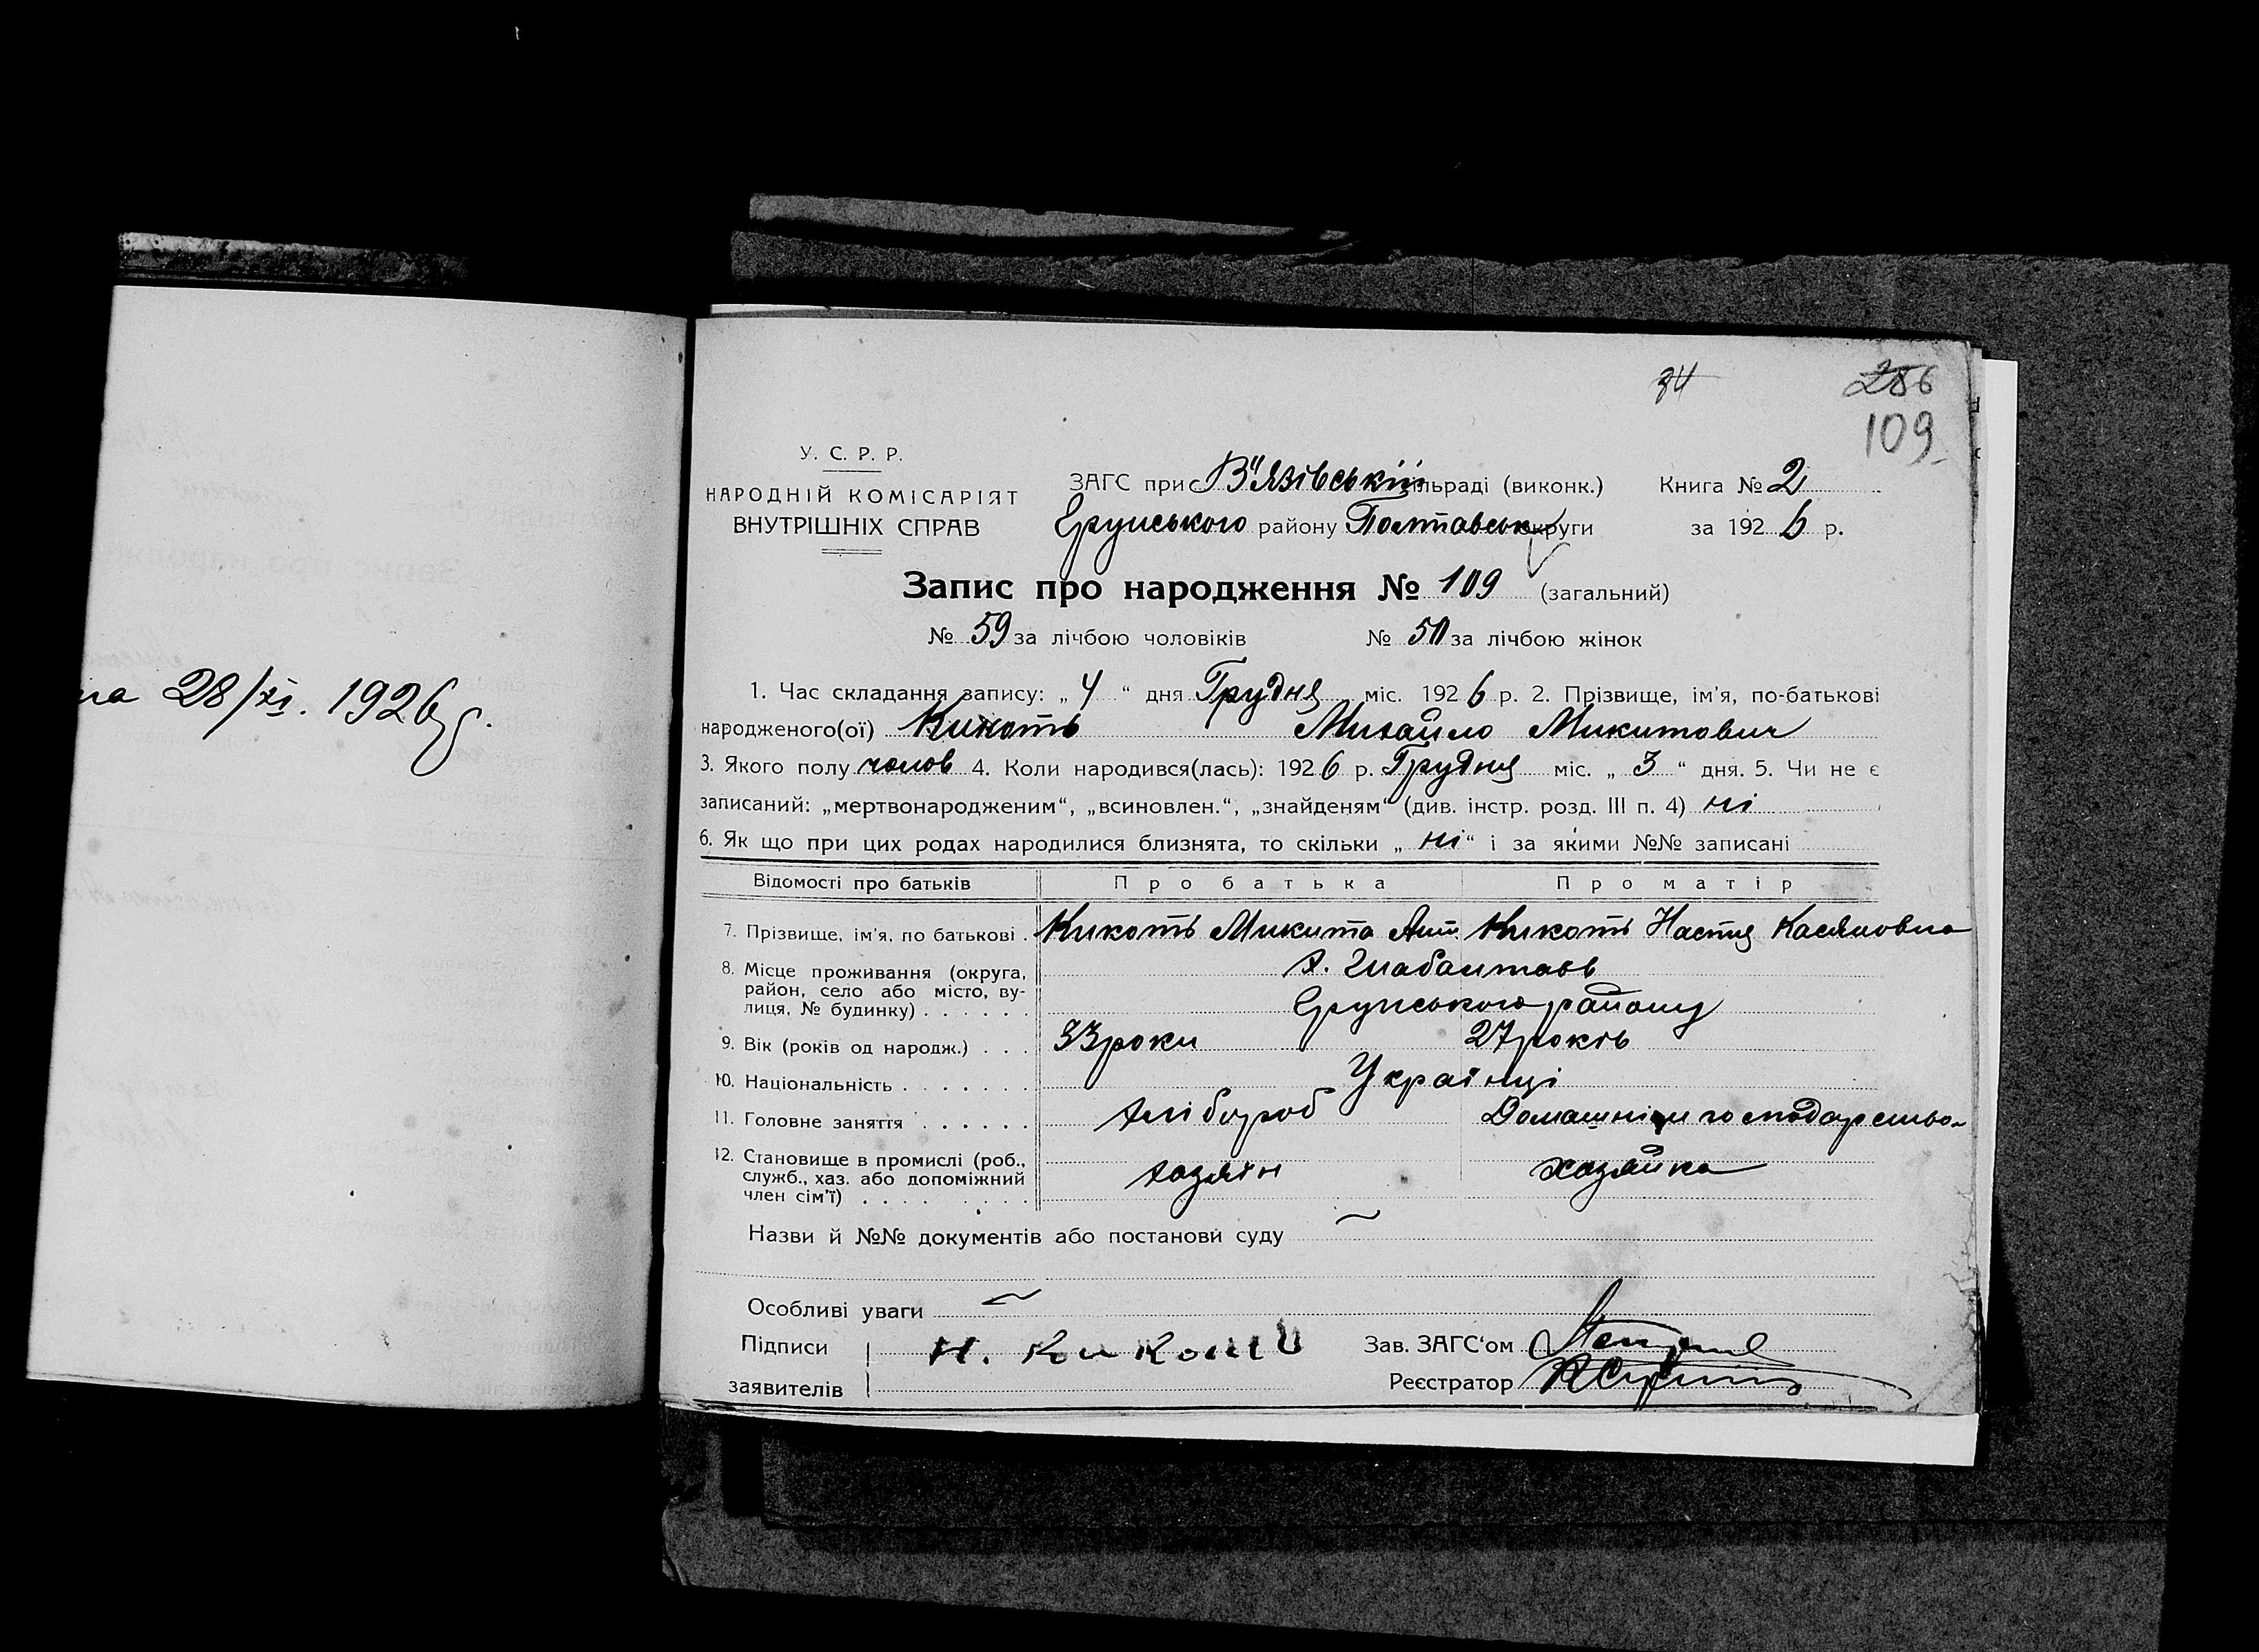 на 28/XI. 1926 р.
34
286
109
У. С. Р. Р.
НАРОДНІЙ КОМІСАРІЯТ
ВНУТРІШНІХ СПРАВ
ЗАГС при В'язівській сільраді (виконк.) Книга № 2
Грунського району Полтавськ округи за 1926 р.
Запис про народження № 109 (загальний)
№ 59 за лічбою чоловіків № 50 за лічбою жінок
1. Час складання запису: „4“ дня Грудня міс. 1926 р. 2. Прізвище, ім'я, по-батькові
народженого(ої) Кикоть Михайло Микитович
3. Якого полу чолов 4. Коли народився(лась): 1926 р. Грудня міс. „3“ дня. 5. Чи не є
записаний: „мертвонародженим“, „всиновлен.“, „знайденям“ (див. інстр. розд. III п. 4) ні
6. Як що при цих родах народилися близнята, то скільки „ні“ і за якими №№ записані
Відомості про батьків Про батька Про матір
7. Прізвище, ім'я, по батькові . Кикоть Микита Ант. Кикоть Настя Касяновна
8. Місце проживання (округа,
район, село або місто, вулиця, № будинку) . . . . . .
х.
Грунського району
9. Вік (років од народж.) . . . 33 роки 27 років
10. Національність . . . . . . . Українці
11. Головне заняття . . . . . . Хлібороб Домашнім господарство
12. Становище в промислі (роб.,
служб., хаз. або допоміжний
член сім'ї) . . . . . . . . хазяїн хазяйка
Назви й №№ документів або постанови суду
Особливі уваги
Підписи Н. Кикоть Зав. ЗАГС'ом
заявителів Реєстратор